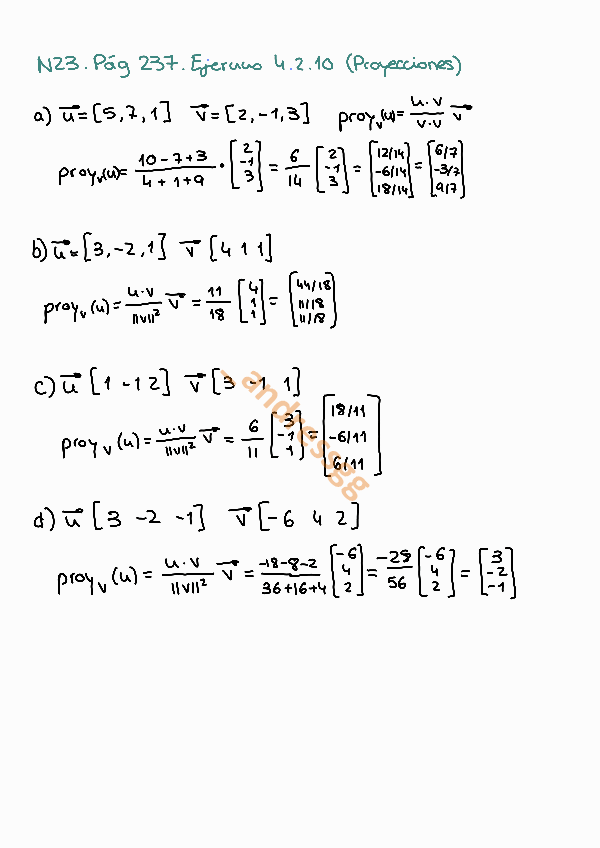 N23. Pág 237. Ejercicio 4.2.10 (Proyecciones)
a) u⃗ = [5, 7, 1] v⃗ = [2, -1, 3] proy_v(u) = (u·v)/(v·v) v⃗
proy_v(u) = (10 - 7 + 3)/(4 + 1 + 9) · [2 -1 3] = 6/14 [2 -1 3] = [12/14 -6/14 18/14] = [6/7 -3/7 9/7]
b) u⃗ = [3, -2, 1] v⃗ [4 1 1]
proy_v(u) = (u·v)/||v||² v⃗ = 11/18 [4 1 1] = [44/18 11/18 11/18]
c) u⃗ [1 -1 2] v⃗ [3 -1 1]
proy_v(u) = (u·v)/||v||² v⃗ = 6/11 [3 -1 1] = [18/11 -6/11 6/11]
andressgg
d) u⃗ [3 -2 -1] v⃗ [-6 4 2]
proy_v(u) = (u·v)/||v||² v⃗ = (-18-8-2)/(36+16+4) [-6 4 2] = -28/56 [-6 4 2] = [3 -2 -1]